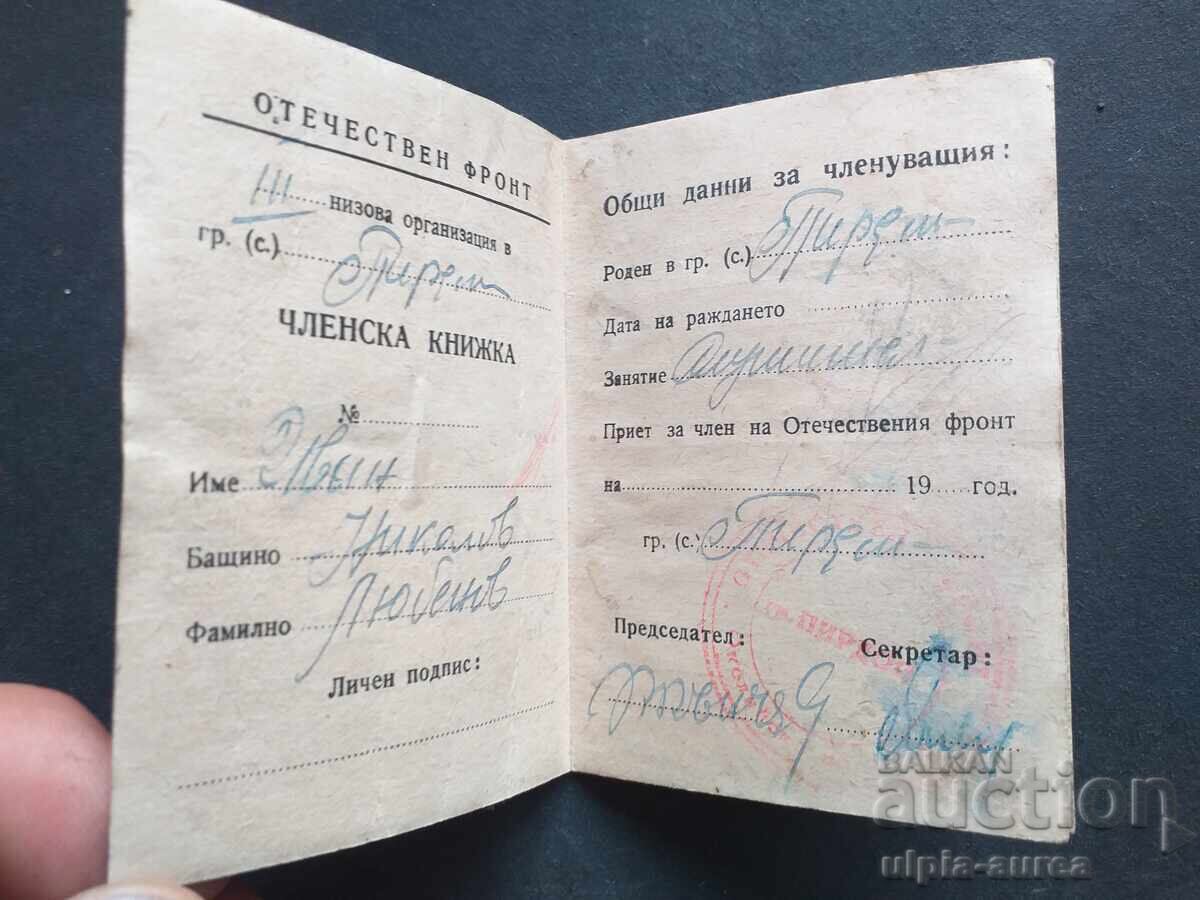 ОТЕЧЕСТВЕН ФРОНТ
III низова организация в
гр. (с.) Пирдоп
ЧЛЕНСКА КНИЖКА
№
Име
Бащино Николов
Фамилно Любенов
Личен подпис:
Общи данни за членуващия:
Роден в гр. (с.) Пирдоп
Дата на раждането
Занятие
Приет за член на Отечествения фронт
на 19 год.
гр. (с.) Пирдоп
Председател:
Секретар:
BALKAN
auction
ulpia-aurea